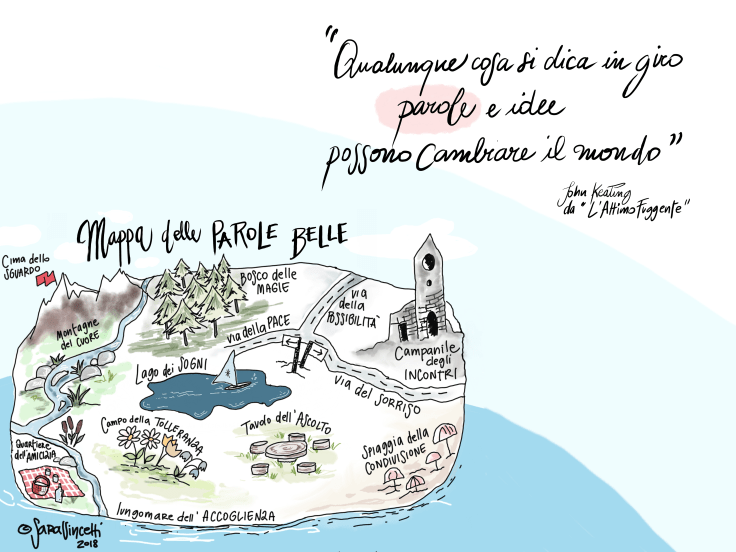 "Qualunque cosa si dica in giro
parole e idee
possono cambiare il mondo"
John Keating
da "L'Attimo Fuggente"
Mappa delle PAROLE BELLE
Cima dello
SGUARDO
BOSCO delle
MAGIE
via
della
POSSIBILITÀ
Montagne
del CUORE
via della PACE
Campanile
degli
INCONTRI
Lago dei SOGNI
via del SORRISO
Campo della TOLLERANZA
Tavolo dell'ASCOLTO
Spiaggia della
CONDIVISIONE
Quartiere
dell'AMICIZIA
lungomare dell'ACCOGLIENZA
© SaraVincetti
2018